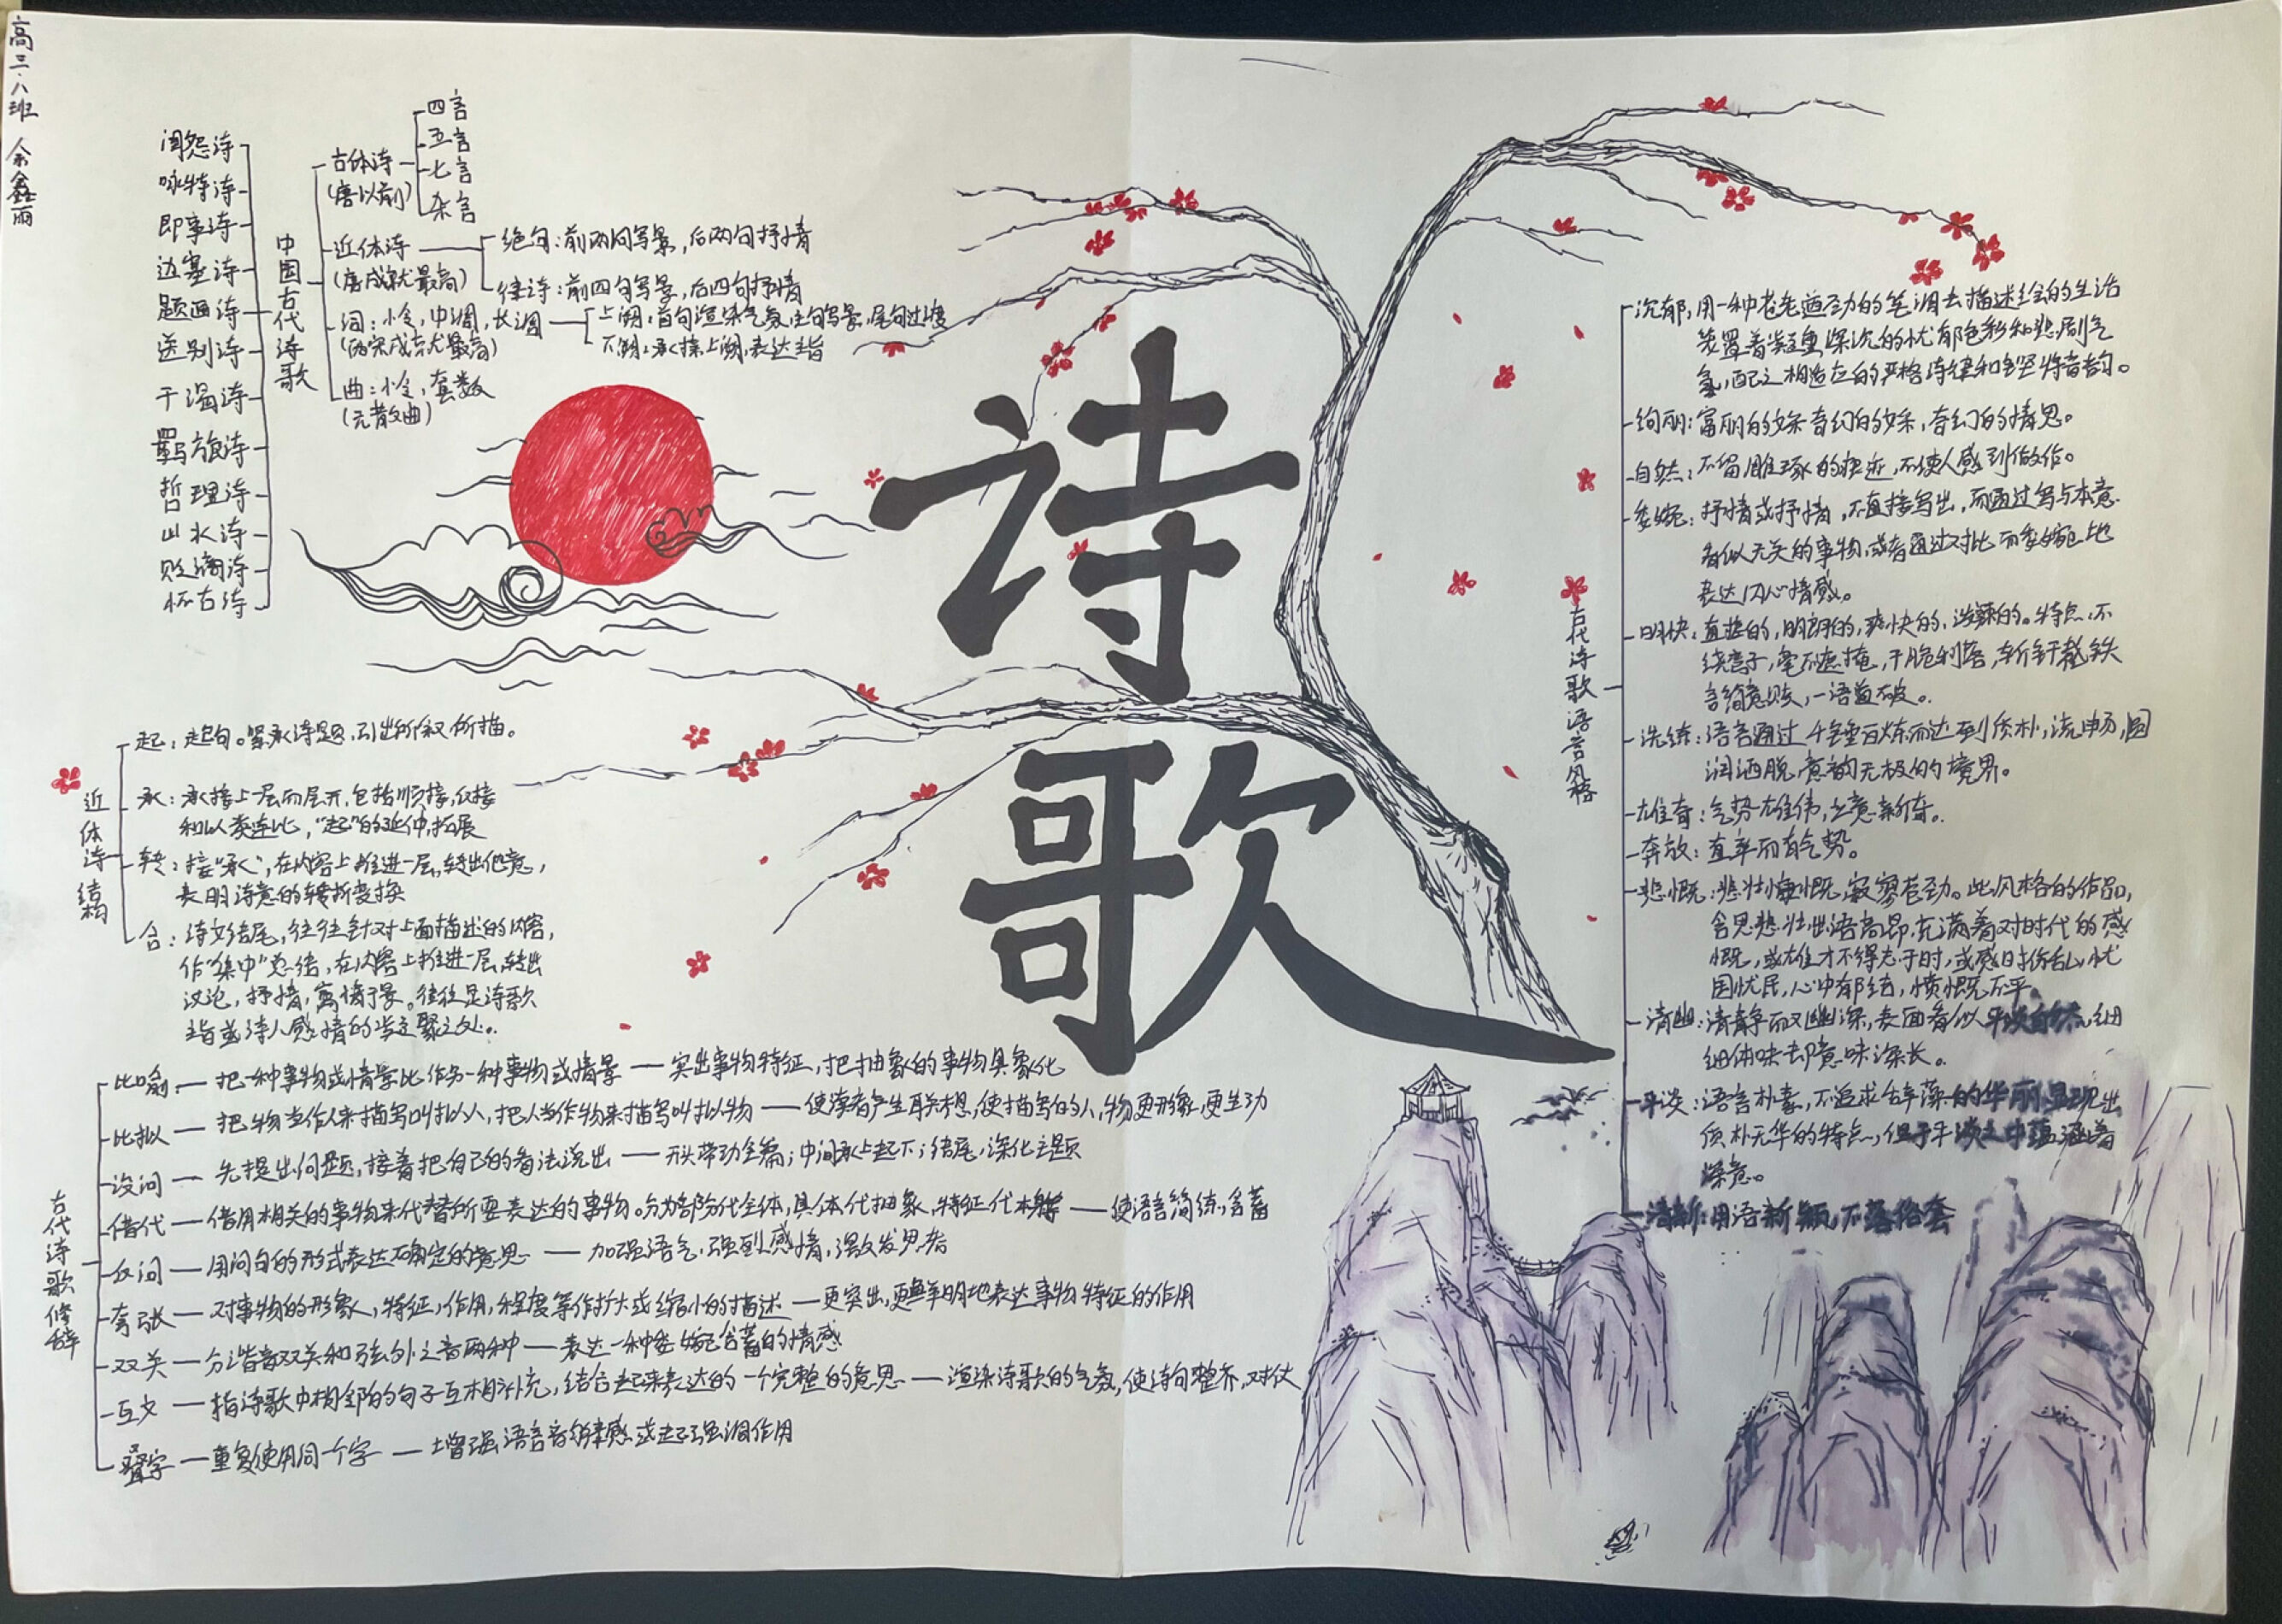 高三·八班 余鑫丽
诗歌
中国古代诗歌
闺怨诗
咏物诗
即事诗
边塞诗
题画诗
送别诗
干谒诗
羁旅诗
哲理诗
山水诗
贬谪诗
怀古诗
古体诗
(唐以前)
四言
五言
七言
杂言
近体诗
(唐成就最高)
绝句:前两句写景,后两句抒情
律诗:前四句写景,后四句抒情
词:小令,中调,长调
(两宋成就最高)
上阕:首句渲染气氛,主句写景,尾句过渡
下阕:承接上阕,表达主旨
曲:小令,套数
(元散曲)
近体诗结构
起:起句。紧承诗题,引出所叙所描。
承:承接上一层而展开,包括顺接,反接
和以类连比,“起”的延伸,拓展
转:接“承”,在内容上推进一层,转出他意,
表明诗意的转折变换
合:诗文结尾,往往针对上面描述的内容,
作“集中”总结,在内容上推进一层,转出
议论,抒情,寓情于景。往往是诗歌
主旨或诗人感情的凝聚之处。
古代诗歌修辞
比喻:—把一种事物或情景比作另一种事物或情景—突出事物特征,把抽象的事物具象化
比拟—把物当作人来描写叫拟人,把人当作物来描写叫拟物—使读者产生联想,使描写的人,物更形象,更生动
设问—先提出问题,接着把自己的看法说出—开头带动全篇;中间承上起下;结尾,深化主题
借代—借用相关的事物来代替所要表达的事物。分为部分代全体,具体代抽象,特征代本体—使语言简练,含蓄
反问—用问句的形式表达确定的意思—加强语气,强烈感情,激发思考
夸张—对事物的形象,特征,作用,程度等作扩大或缩小的描述—更突出,更鲜明地表达事物特征的作用
双关—分谐音双关和弦外之音两种—表达一种委婉含蓄的情感
互文—指诗歌中相邻的句子互相补充,结合起来表达的一个完整的意思—渲染诗歌的气氛,使诗句整齐,对仗
叠字—重复使用同一个字—增强语言音律感或起强调作用
古代诗歌语言风格
沉郁,用一种苍老遒劲的笔调去描述绘的生活
笼罩着凝重深沉的忧郁色彩和悲剧气
氛,配之相适应的严格诗律和铿锵音韵。
绚丽:富丽的 奇幻的 奇幻的情思。
自然:不留雕琢的痕迹,不使人感到做作。
委婉:抒情或抒情,不直接写出,而通过写与本意
看似无关的事物,或者通过对比而委婉地
表达内心情感。
明快:直接的,明朗的,爽快的,泼辣的。特点:不
绕弯子,毫不遮掩,干脆利落,斩钉截铁
言简意赅,一语道破。
洗练:语言通过千锤百炼而达到质朴,流畅,圆
润洒脱,意韵无极的境界。
雄奇:气势雄伟,立意新奇。
奔放:直率而有气势。
悲慨:悲壮慷慨,寂寥苍劲。此风格的作品,
含思悲壮,出语高昂,充满着对时代的感
慨,或雄才不得志于时,或感时伤乱,忧
国忧民,心中郁结,愤慨不平。
清幽:清静而又幽深,表面看似平淡自然,细
细体味却意味深长。
平淡:语言朴素,不追求辞藻的华丽,显现出
质朴无华的特点,但于平淡之中蕴涵着
深意。
清新:用语新颖,不落俗套